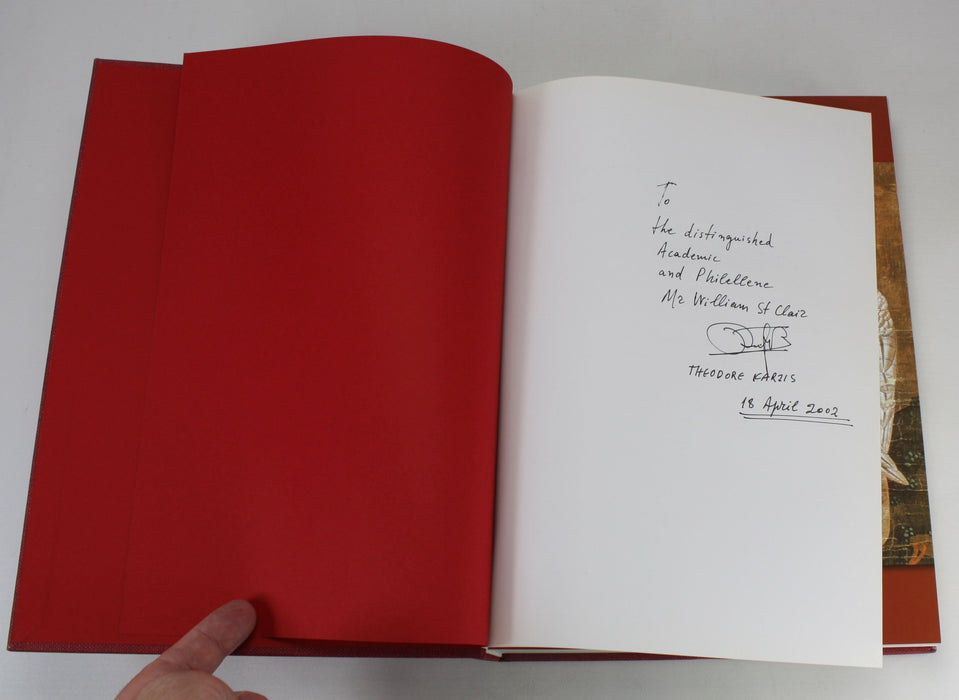 To
the distinguished
Academic
and Philellene
Mr William St Clair
THEODORE KARZIS
18 April 2002